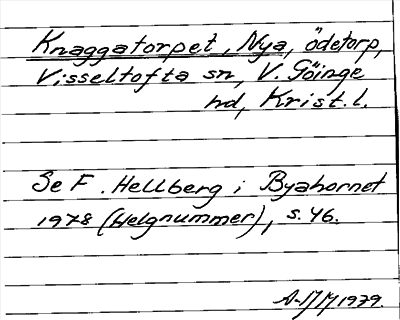 Knaggatorpet, Nya, ödetorp,
Visseltofta sn, V. Göinge
hd, Krist. l.
Se F. Hellberg i Byahornet
1978 (Helgnummer), s. 46.
1979.